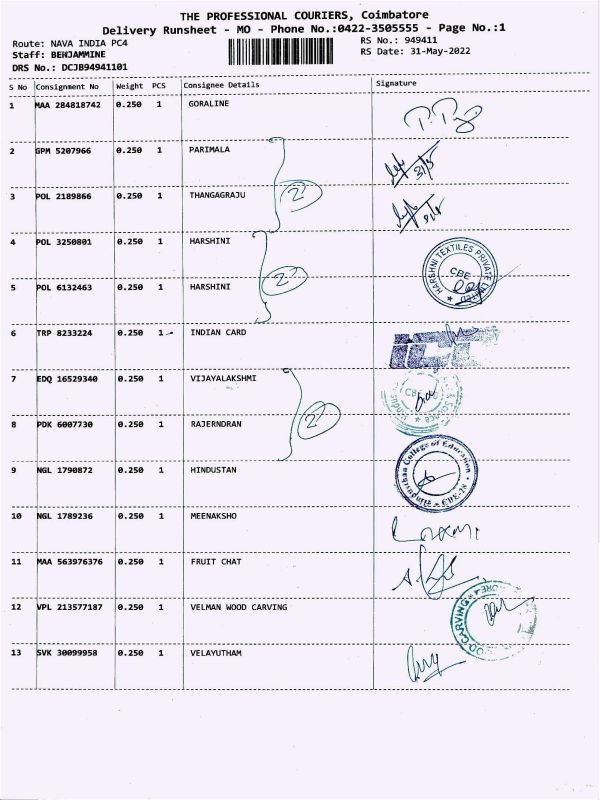 THE PROFESSIONAL COURIERS, Coimbatore
Delivery Runsheet - MO - Phone No.:0422-3505555 - Page No.:1
Route: NAVA INDIA PC4 RS No.: 949411
Staff: BENJAMMINE RS Date: 31-May-2022
DRS No.: DCJB94941101
S No Consignment No Weight PCS Consignee Details Signature
1 MAA 284818742 0.250 1 GORALINE
2 GPM 5207966 0.250 1 PARIMALA 31/5
3 POL 2189866 0.250 1 THANGAGRAJU 2
4 POL 3250801 0.250 1 HARSHINI
HARSHNI TEXTILES PRIVATE LIMITED
CBE
5 POL 6132463 0.250 1 HARSHINI 2
6 TRP 8233224 0.250 1 INDIAN CARD
7 EDQ 16529340 0.250 1 VIJAYALAKSHMI
8 PDK 6007730 0.250 1 RAJERNDRAN 2
9 NGL 1790872 0.250 1 HINDUSTAN
College of Education
CBE-28
10 NGL 1789236 0.250 1 MEENAKSHO
11 MAA 563976376 0.250 1 FRUIT CHAT
12 VPL 213577187 0.250 1 VELMAN WOOD CARVING
WOOD CARVING
13 SVK 30099958 0.250 1 VELAYUTHAM